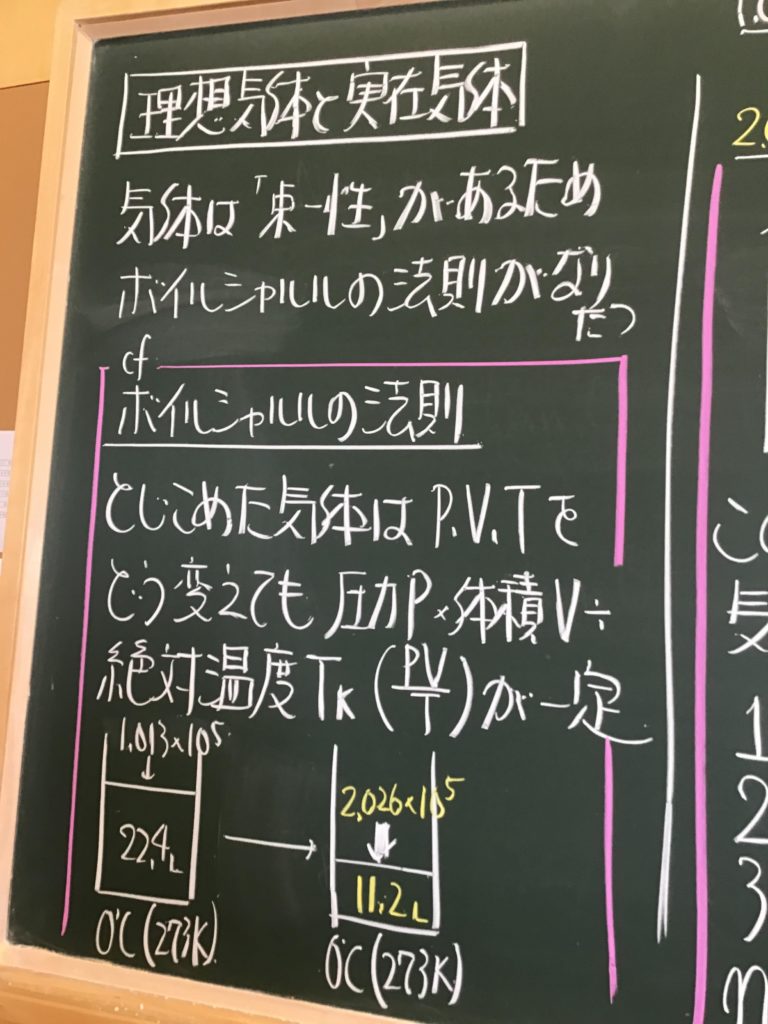 理想気体と実在気体
気体は「束一性」があるため
ボイルシャルルの法則がなり
たつ
cf
ボイルシャルルの法則
とじこめた気体は P.V.Tを
どう変えても 圧力P×体積V÷
絶対温度TK (PV/T)が一定
1,013×10⁵
22,4L
0℃(273K)
2,026×10⁵
11,2L
0℃(273K)
2
この
気
1
2
3
n